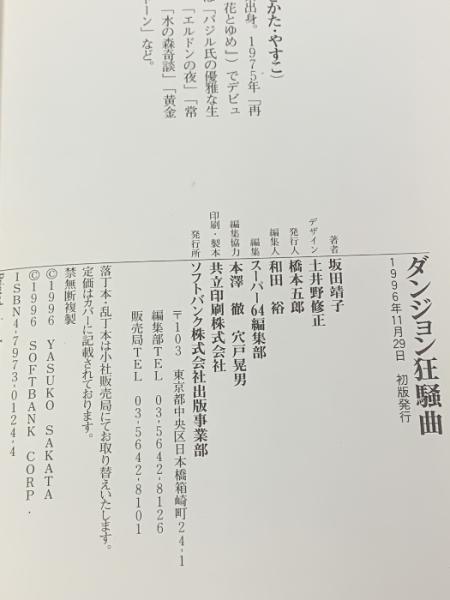 かた・やすこ）
出身。1975年「再
花とゆめ」）でデビュ
「バジル氏の優雅な生
「エルドンの夜」「常
「水の森奇談」「黄金
ーン」など。
ダンジョン狂騒曲
1996年11月29日　初版発行
著者　坂田靖子
デザイン　土井野修正
発行人　橋本五郎
編集人　和田　裕
編集　スーパー64編集部
編集協力　本澤　徹　穴戸晃男
印刷・製本　共立印刷株式会社
発行所　ソフトバンク株式会社出版事業部
〒103　東京都中央区日本橋箱崎町24-1
編集部TEL　03-5642-8126
販売局TEL　03-5642-8101
落丁本・乱丁本は小社販売局にてお取り替えいたします。
定価はカバーに記載されております。
禁無断複製
©1996 YASUKO SAKATA
©1996 SOFTBANK CORP.
ISBN4-7973-0124-4